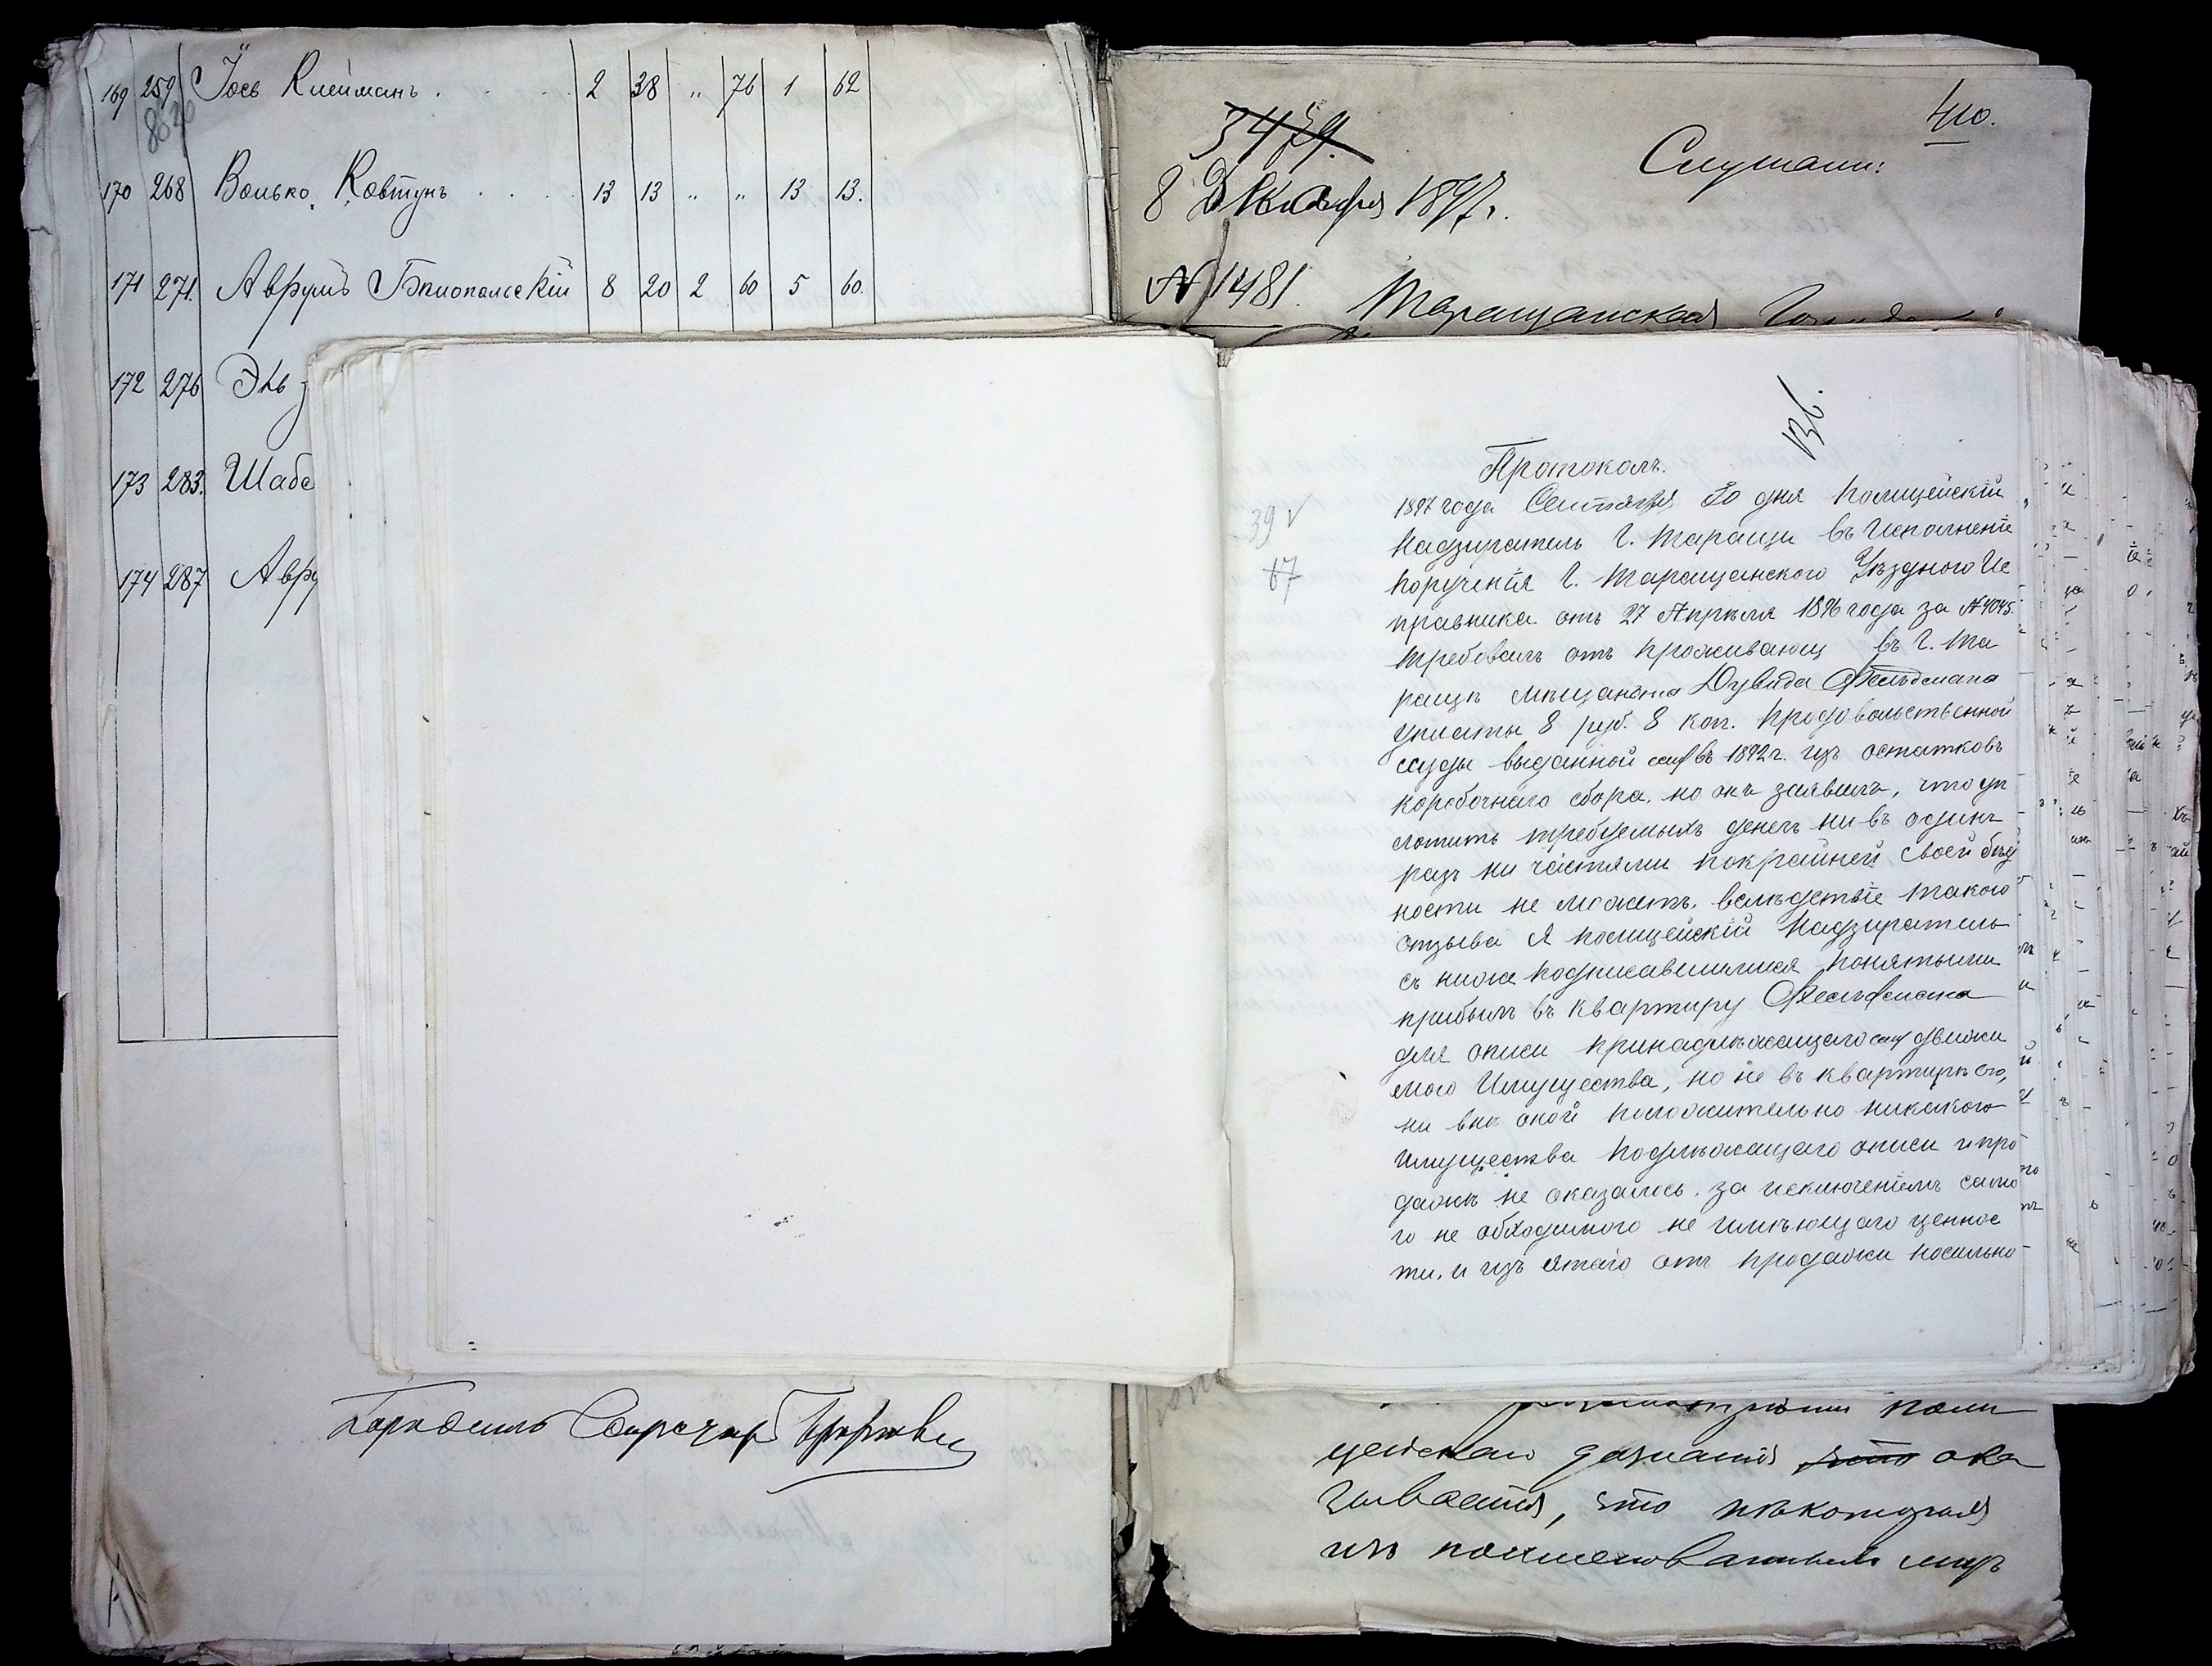 169 259 Іось Клейманъ . 2 38 „ 76 1 62
8030
170 268 Волько Ковтунъ . . . 13 13 „ „ 13 13.
171 271. Аврумъ Бѣлопольскій 8 20 2 60 5 60.
172 276
173 283. Шабс
174 287 Авру
410.
3479.
Слушали:
8 Декабря 1897 г.
№ 1481.
Таращанская
136.
Протоколъ.
39 √
67
1897 года Сентября 30 дня Полицейскій
Надзиратель Г. Таращи въ Исполненіе
порученія Г. Таращанского Уѣздного Ис
правника отъ 27 Апрѣля 1896 года за № 4045.
требовалъ отъ проживающ въ Г. Та
ращѣ мѣщанина Дувида Фельдмана
уплаты 8 руб. 8 коп. продовольственной
ссуды выданной ему въ 1892 г. изъ остатковъ
коробочнаго сбора, но онъ заявилъ, что уп
латить требуемыхъ денегъ ни въ одинъ
разъ ни частями покрайней своей бѣд
ности не можетъ. вслѣдствіе такого
отзыва Я полицейскій Надзиратель
съ ниже подписавшимися понятыми
прибылъ въ квартиру Фельдмана
для описи принадлѣжащаго ему движи
мого Имущества, но не въ квартирѣ его,
ни внѣ оной положительно никакого
Имущества подлѣжащаго описи и про
дажѣ не оказалось. за исключеніемъ само
го не обходимого не имѣющаго ценнос
ти, и изъ ятаго отъ продажи носильно
поли
цейскаго дознанія что ока
зывается, что нѣкоторыя
изъ поименованныхъ лицъ